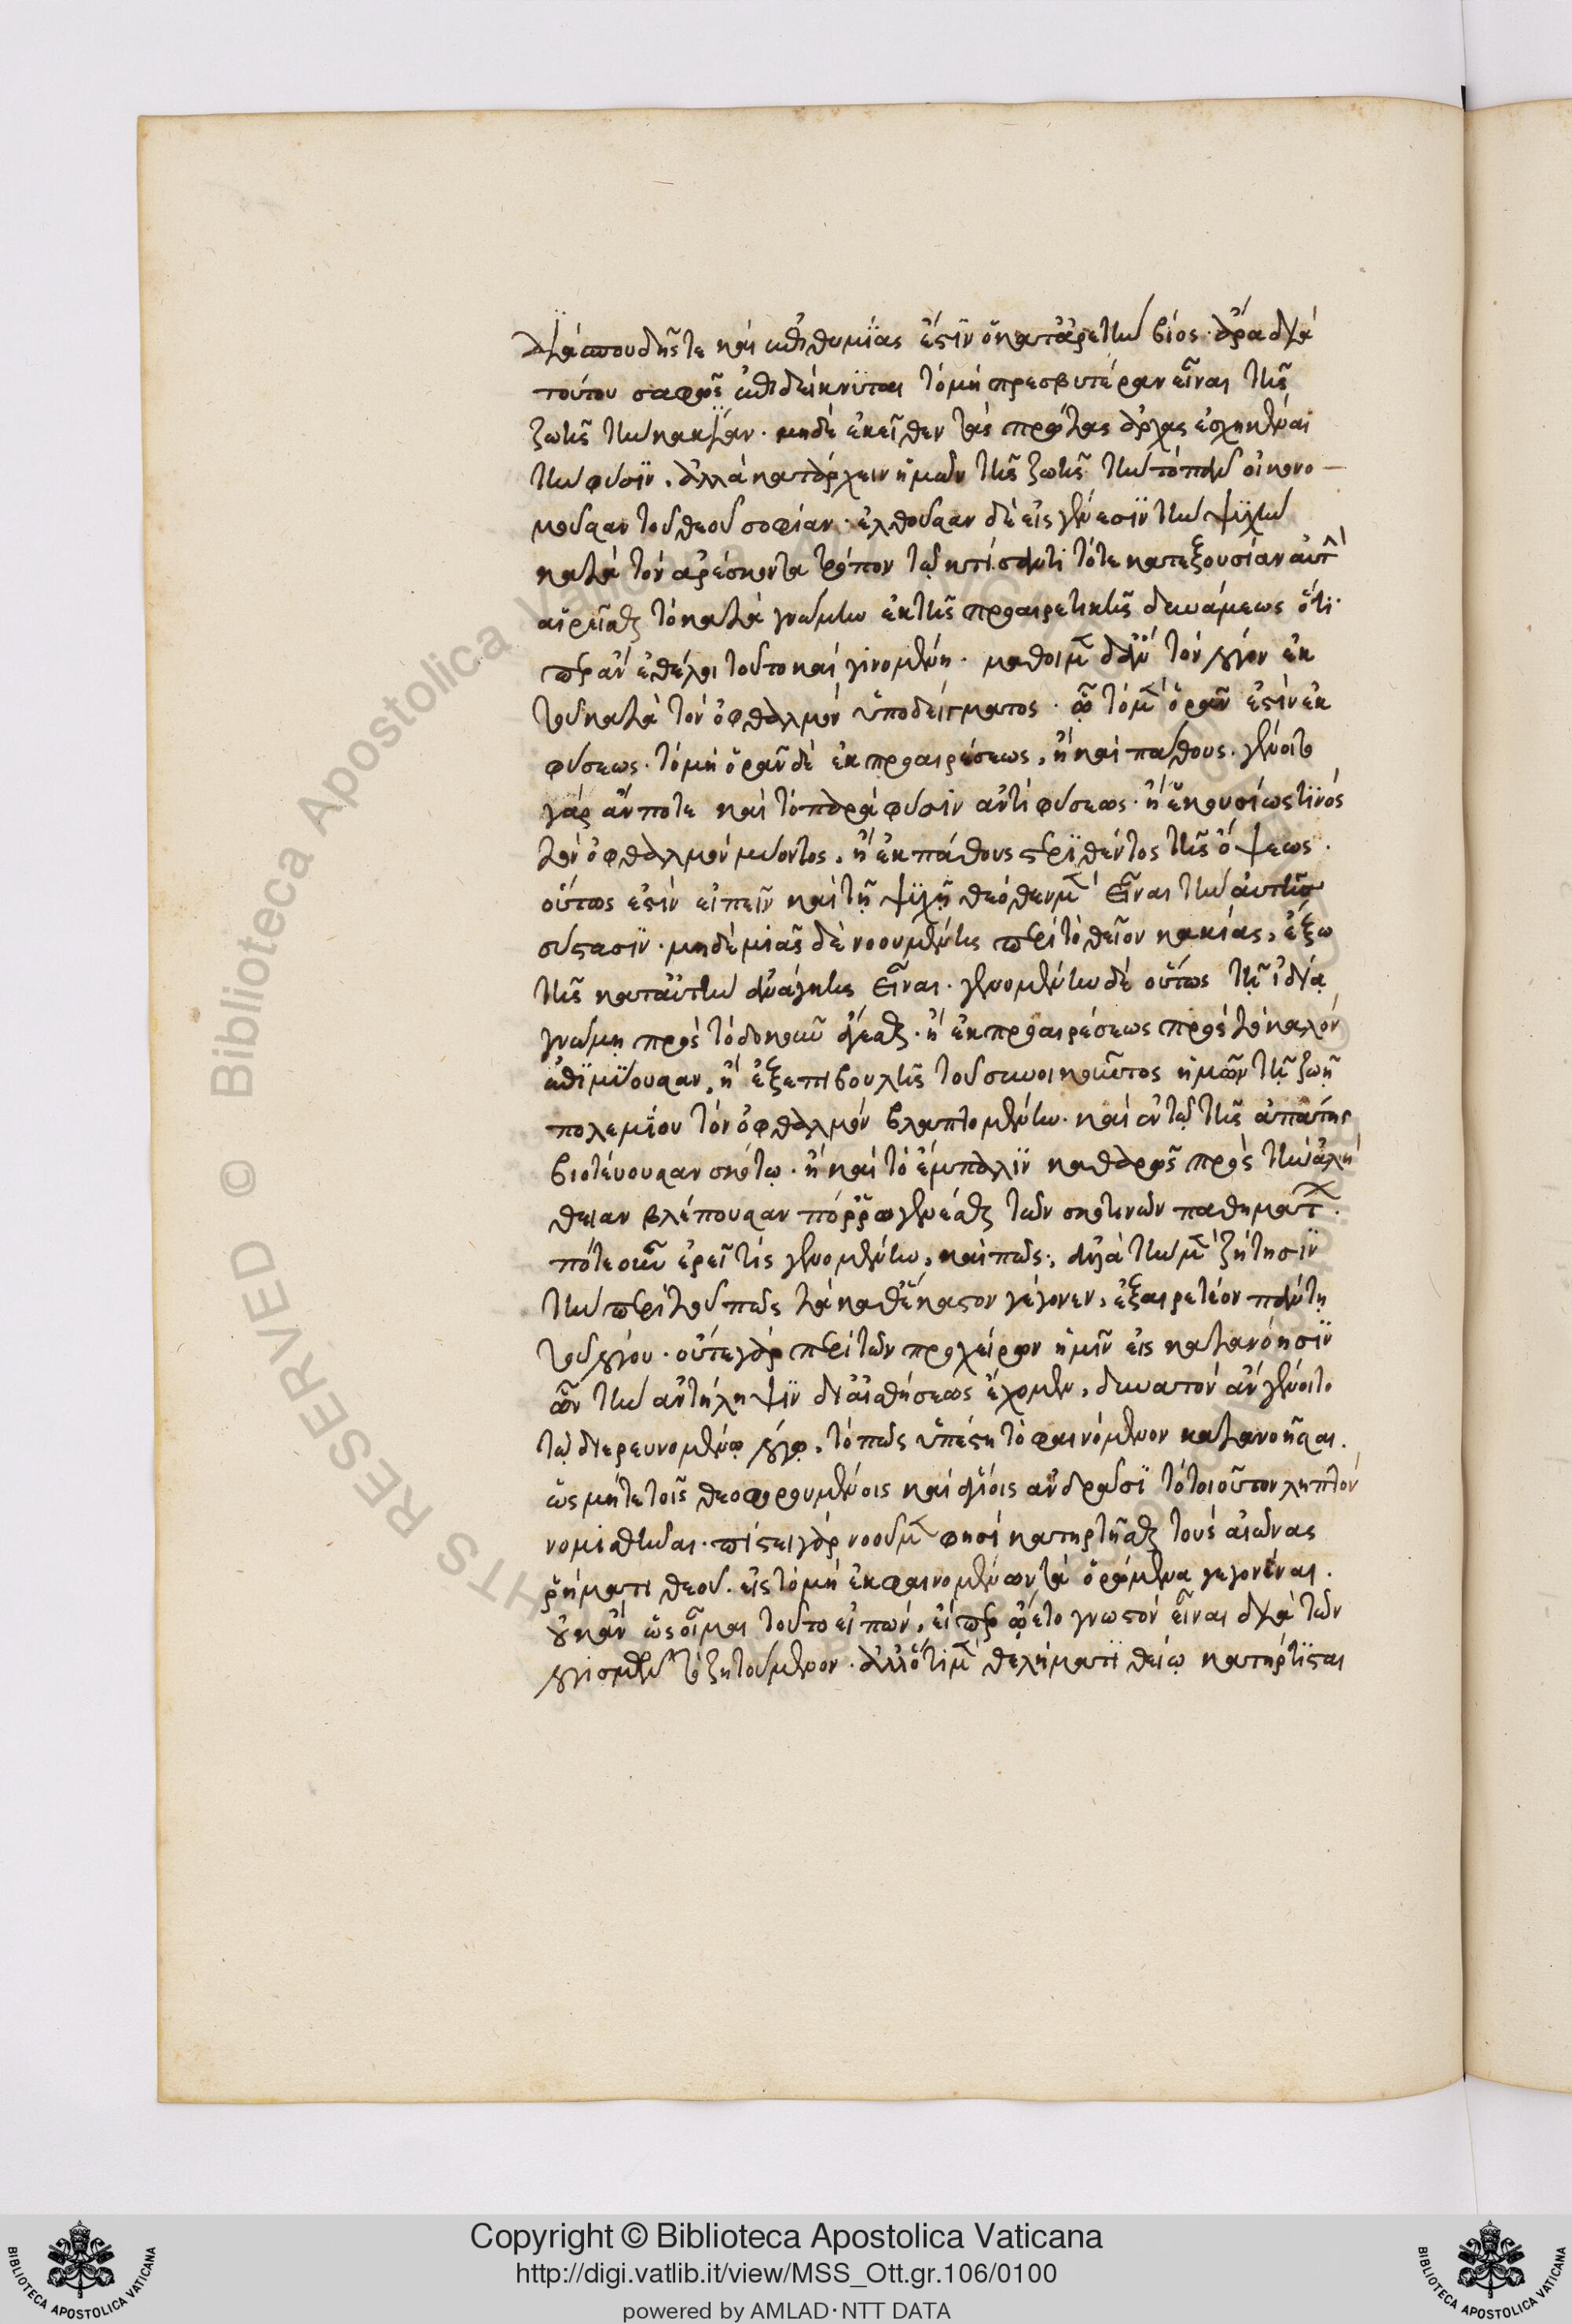 διὰ σπουδῆς τε καὶ ἐπιθυμίας ἐστὶν ὁ κατ' ἀρετὴν βίος. ἄρα διὰ
τούτου σαφῶς ἐπιδείκνυται τὸ μὴ πρεσβυτέραν εἶναι τῆς
ζωῆς τὴν κακίαν. μηδὲ ἐκεῖθεν τὰς πρώτας ἀρχὰς ἐσχηκέναι
τὴν φύσιν. ἀλλὰ κατάρχειν ἡμῶν τῆς ζωῆς τὴν τὸ πᾶν οἰκονο-
μοῦσαν τοῦ θεοῦ σοφίαν. ἐλθοῦσαν δὲ εἰς γένεσιν τὴν ψυχὴν
κατὰ τὸν ἀρέσκοντα τρόπον τῷ κτίσαντι τότε κατεξουσίαν αὐτ
αἱρεῖσθαι τὸ κατὰ γνώμην ἐκ τῆς προαιρετικῆς δυνάμεως ὅτι
περ ἂν ἐθέλοι τοῦτο καὶ γινομένη. μάθοιμεν δ' ἂν τὸν λόγον ἐκ
τοῦ κατὰ τὸν ὀφθαλμὸν ὑποδείγματος. ᾧ τὸ μὲν ὁρᾶν ἐστὶν ἐκ
φύσεως. τὸ μὴ ὁρᾶν δὲ ἐκ προαιρέσεως, ἢ καὶ πάθους. γένοιτο
γὰρ ἄν ποτε καὶ τὸ παρὰ φύσιν ἀντὶ φύσεως. ἢ ἑκουσίως τινὸς
τὸν ὀφθαλμὸν μύοντος, ἢ ἐκ πάθους στερηθέντος τῆς ὄψεως.
οὕτως ἐστὶν εἰπεῖν καὶ τῇ ψυχῇ θεόθεν μὲν εἶναι τὴν αὐτῆς
σύστασιν. μηδεμιᾶς δὲ νοουμένης περὶ τὸ θεῖον κακίας, ἔξω
τῆς κατ' αὐτὴν ἀνάγκης εἶναι. γενομένην δὲ οὕτως τῇ ἰδίᾳ
γνώμῃ πρὸς τὸ δοκοῦν ἄγεσθαι. ἢ ἐκ προαιρέσεως πρὸς τὸ καλὸν
ἐπιμύουσαν, ἢ ἐξ ἐπιβουλῆς τοῦ συνοικοῦντος ἡμῶν τῇ ζωῇ
πολεμίου τὸν ὀφθαλμὸν βλαπτομένην. καὶ ἐν τῷ τῆς ἀπάτης
βιοτεύουσαν σκότῳ. ἢ καὶ τὸ ἔμπαλιν καθαρῶς πρὸς τὴν ἀλή
θειαν βλέπουσαν πόρρω γενέσθαι τῶν σκοτεινῶν παθημάτ.
πότε οὖν ἐρεῖ τις γενομένην, καὶ πῶς; ἀλλὰ τὴν μὲν ζήτησιν
τὴν περὶ τοῦ πῶς τὰ καθέκαστον γέγονεν, ἐξαιρετέον πάντη
τοῦ λόγου. οὔτε γὰρ περὶ τῶν προχείρων ἡμῖν εἰς κατανόησιν
ὧν τὴν ἀντίληψιν δι' αἰσθήσεως ἔχομεν, δυνατὸν ἂν γένοιτο
τῷ διερευνομένῳ λόγῳ, τὸ πῶς ὑπέστη τὸ φαινόμενον κατανοῆσαι.
ὡς μήτε τοῖς θεοφορουμένοις καὶ ἁγίοις ἀνδράσι τὸ τοιοῦτον ληπτὸν
νομισθῆναι. πίστει γὰρ νοοῦμεν φησὶ κατηρτῆσθαι τοὺς αἰῶνας
ῥήματι θεοῦ. εἰς τὸ μὴ ἐκ φαινομένων τὰ ὁρώμενα γεγονέναι.
οὐκ ἂν ὡς οἶμαι τοῦτο εἰπών, εἴπερ ᾤετο γνωστὸν εἶναι διὰ τῶν
λογισμῶν τὸ ζητούμενον. ἀλλ' ὅτι μὲν θελήματι θείῳ κατήρτισται